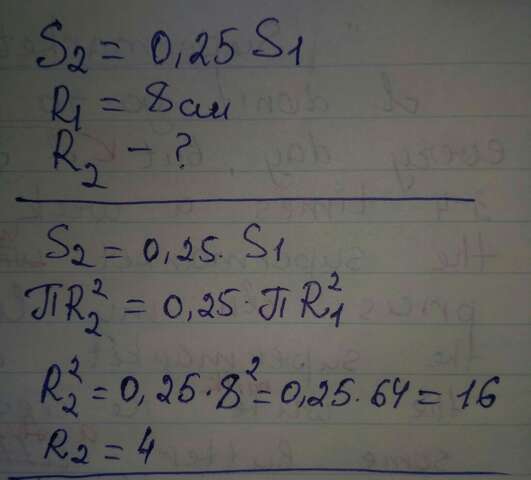 S₂ = 0,25 S₁
R₁ = 8см
R₂ – ?
S₂ = 0,25 · S₁
πR₂² = 0,25 · πR₁²
R₂² = 0,25 · 8² = 0,25 · 64 = 16
R₂ = 4